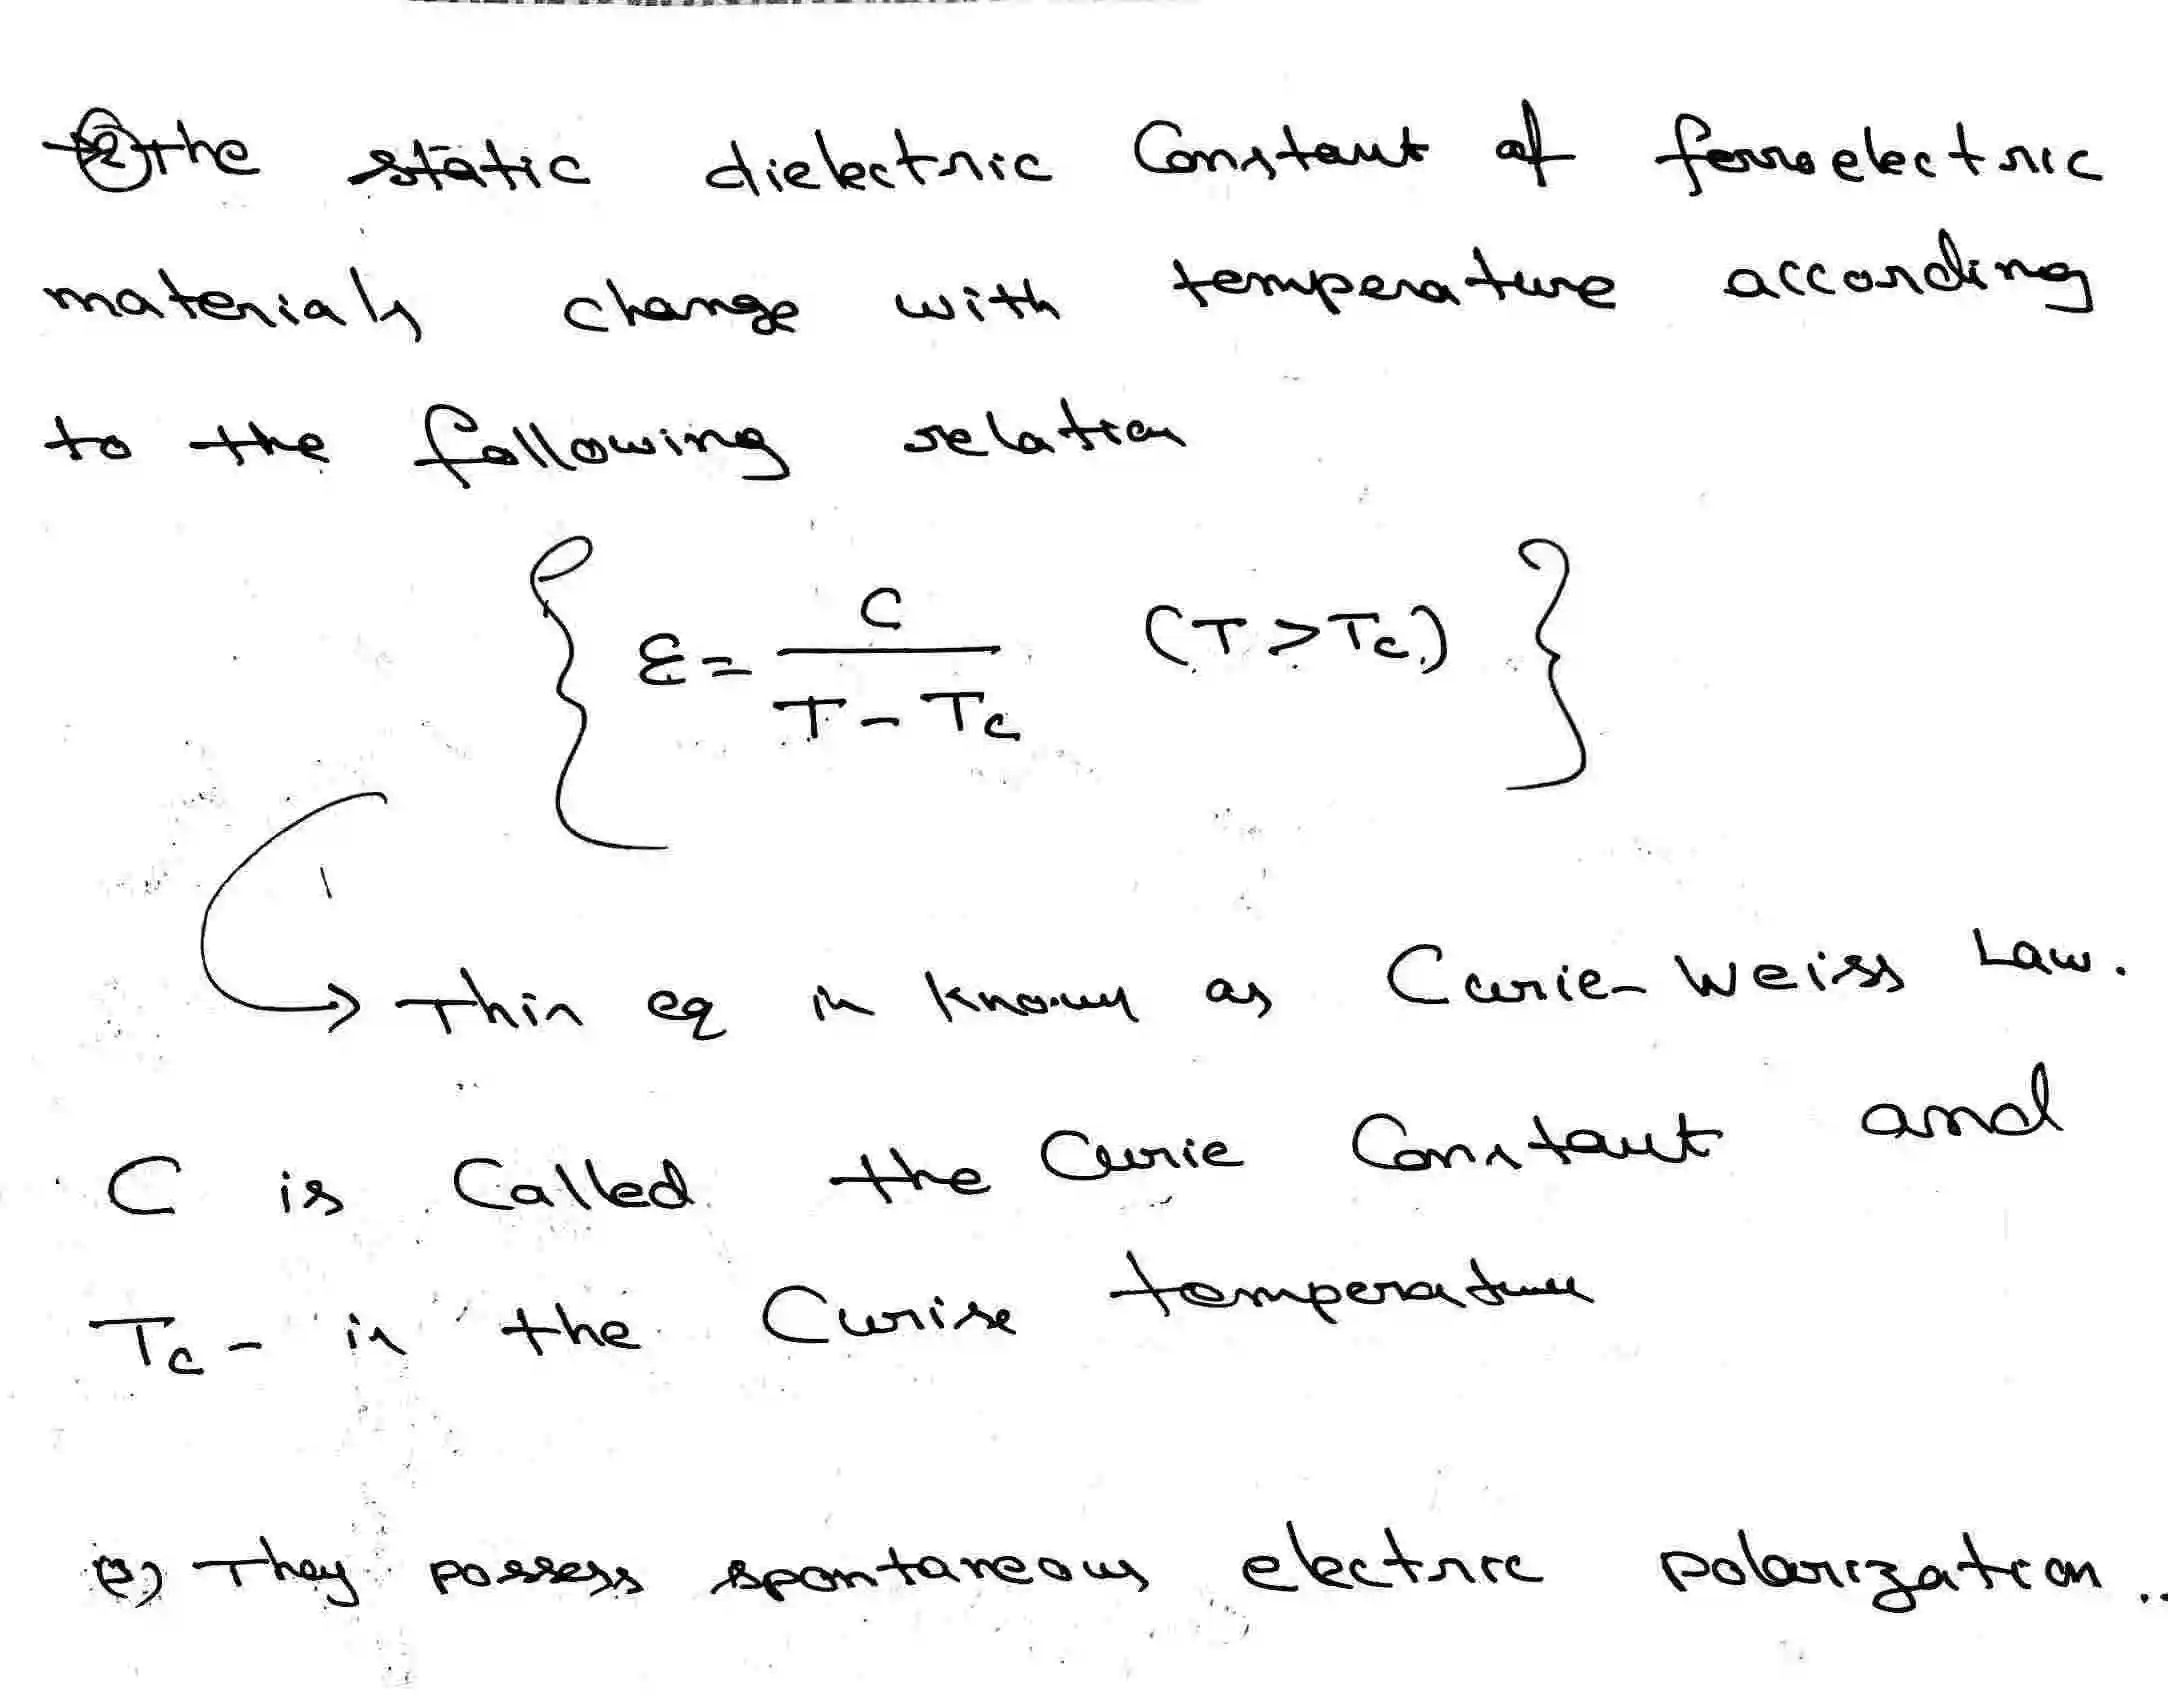 ② The static dielectric Constant of ferroelectric
materials change with temperature according
to the following relation
ε = C / (T - Tc) (T > Tc)
→ This eq is known as Curie-Weiss Law.
C is Called the Curie Constant and
Tc - is the Curise temperature
They possess spontaneous electric polarization..